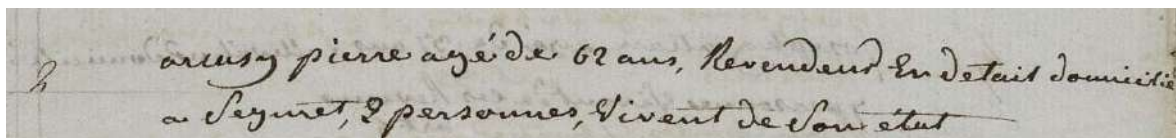 2 arcusy pierre agé de 62 ans, Revendeur En detail domicilié
a Seguret, 2 personnes, Vivent de Son état